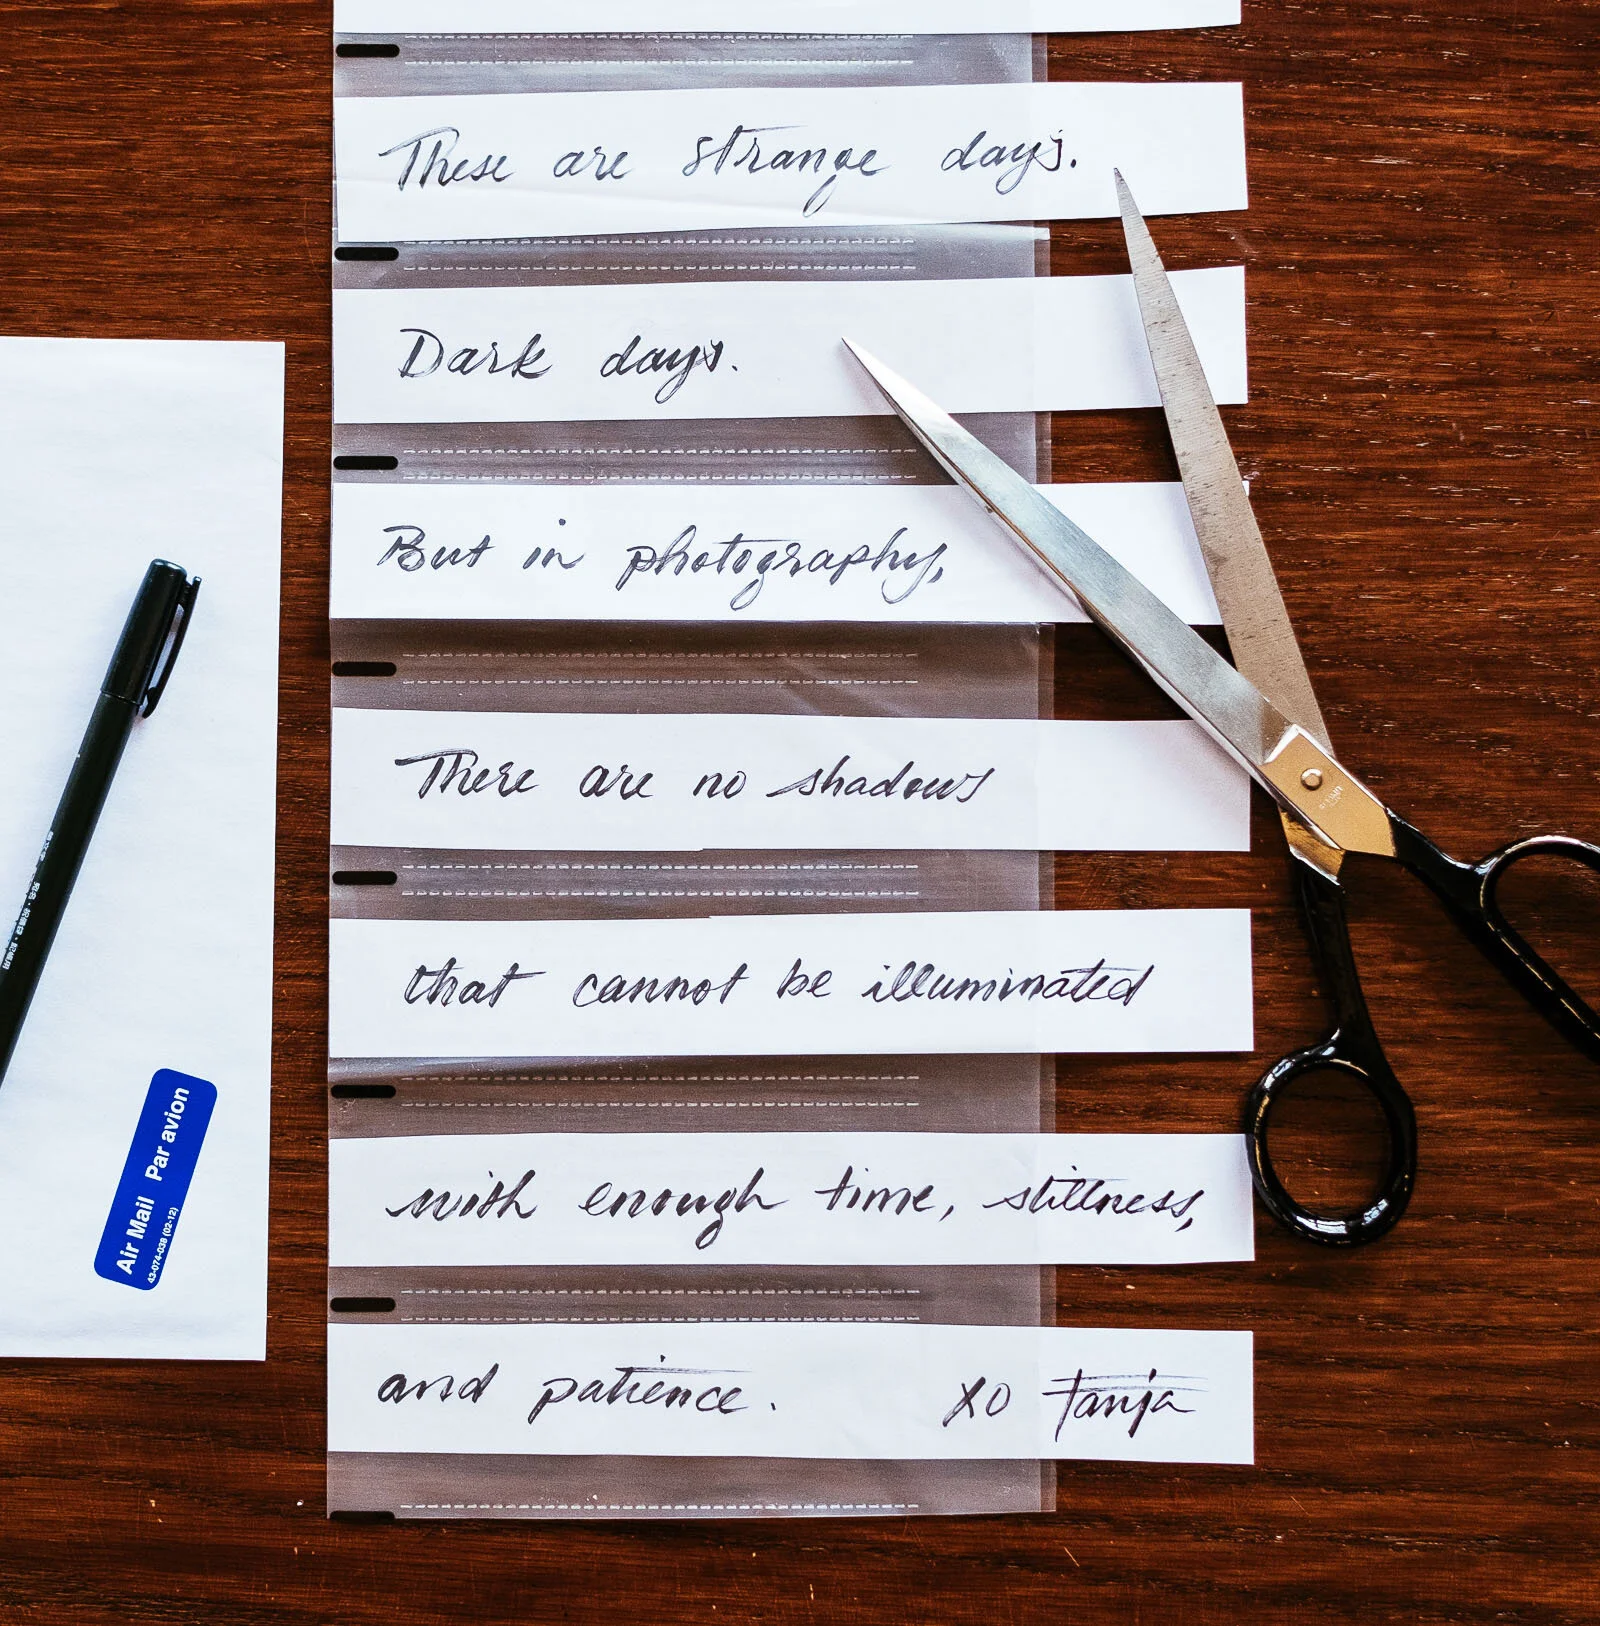 These are strange days.
Dark days.
But in photography,
There are no shadows
that cannot be illuminated
with enough time, stillness,
and patience. XO Tanja
Air Mail Par avion
43-074-038 (02-12)